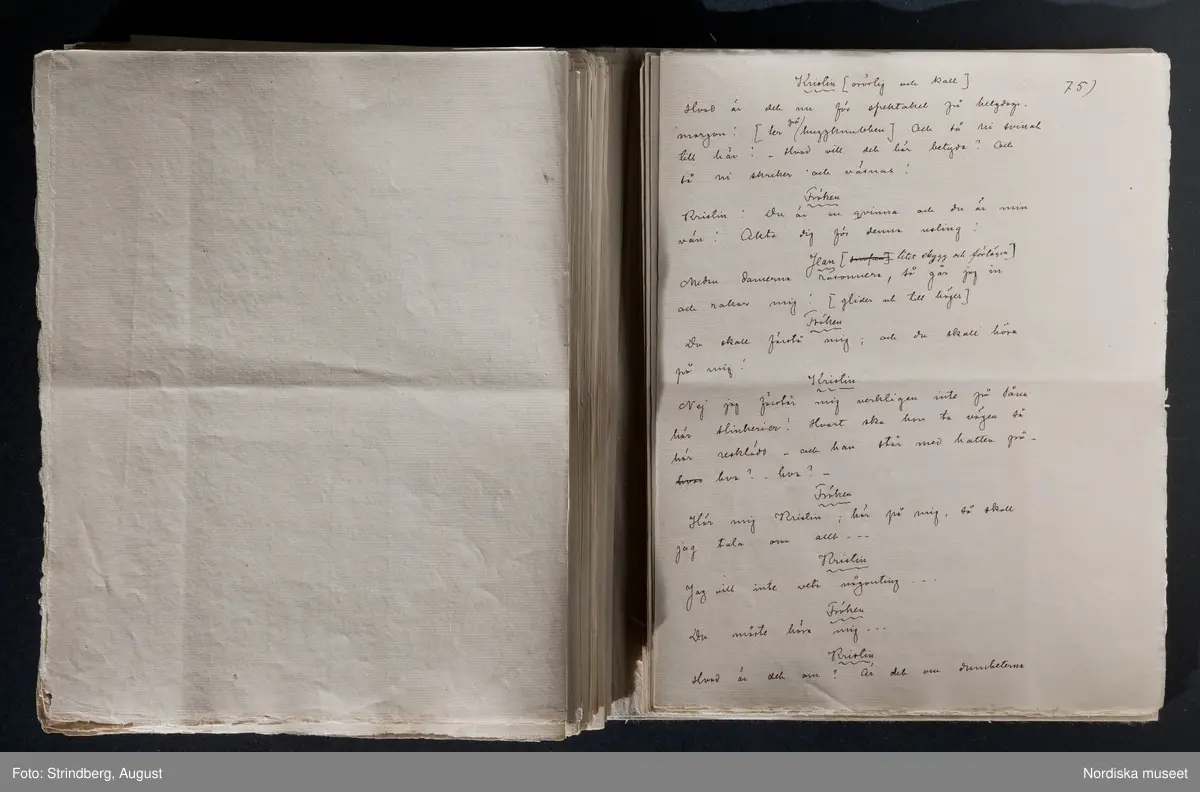 Kristin [orörlig och kall]
75)
Hvad är det nu för spektakel på helgdags-
morgon! [ser på huggkubben] Och så ni svinat
till här! – Hvad vill det här betyda? Och
så ni skriker och väsnas!
Fröken
Kristin! Du är en qvinna och du är min
vän! Akta dig för denna usling!
Jean [litet skygg och förlägen]
Medan damerna räsonnera, så går jag in
och rakar mig! [glider ut till höger]
Fröken
Du skall förstå mig; och du skall höra
på mig!
Kristin
Nej jag förstår mig verkligen inte på såna
här slinkerier! Hvart ska hon ta vägen så
här resklädd – och han står med hatten på –
hva? – hva? –
Fröken
Hör mig Kristin; hör på mig, så skall
jag tala om allt ---
Kristin
Jag vill inte veta någonting ---
Fröken
Du måste höra mig ---
Kristin
Hvad är det om? Är det om dumheterna
Foto: Strindberg, August
Nordiska museet